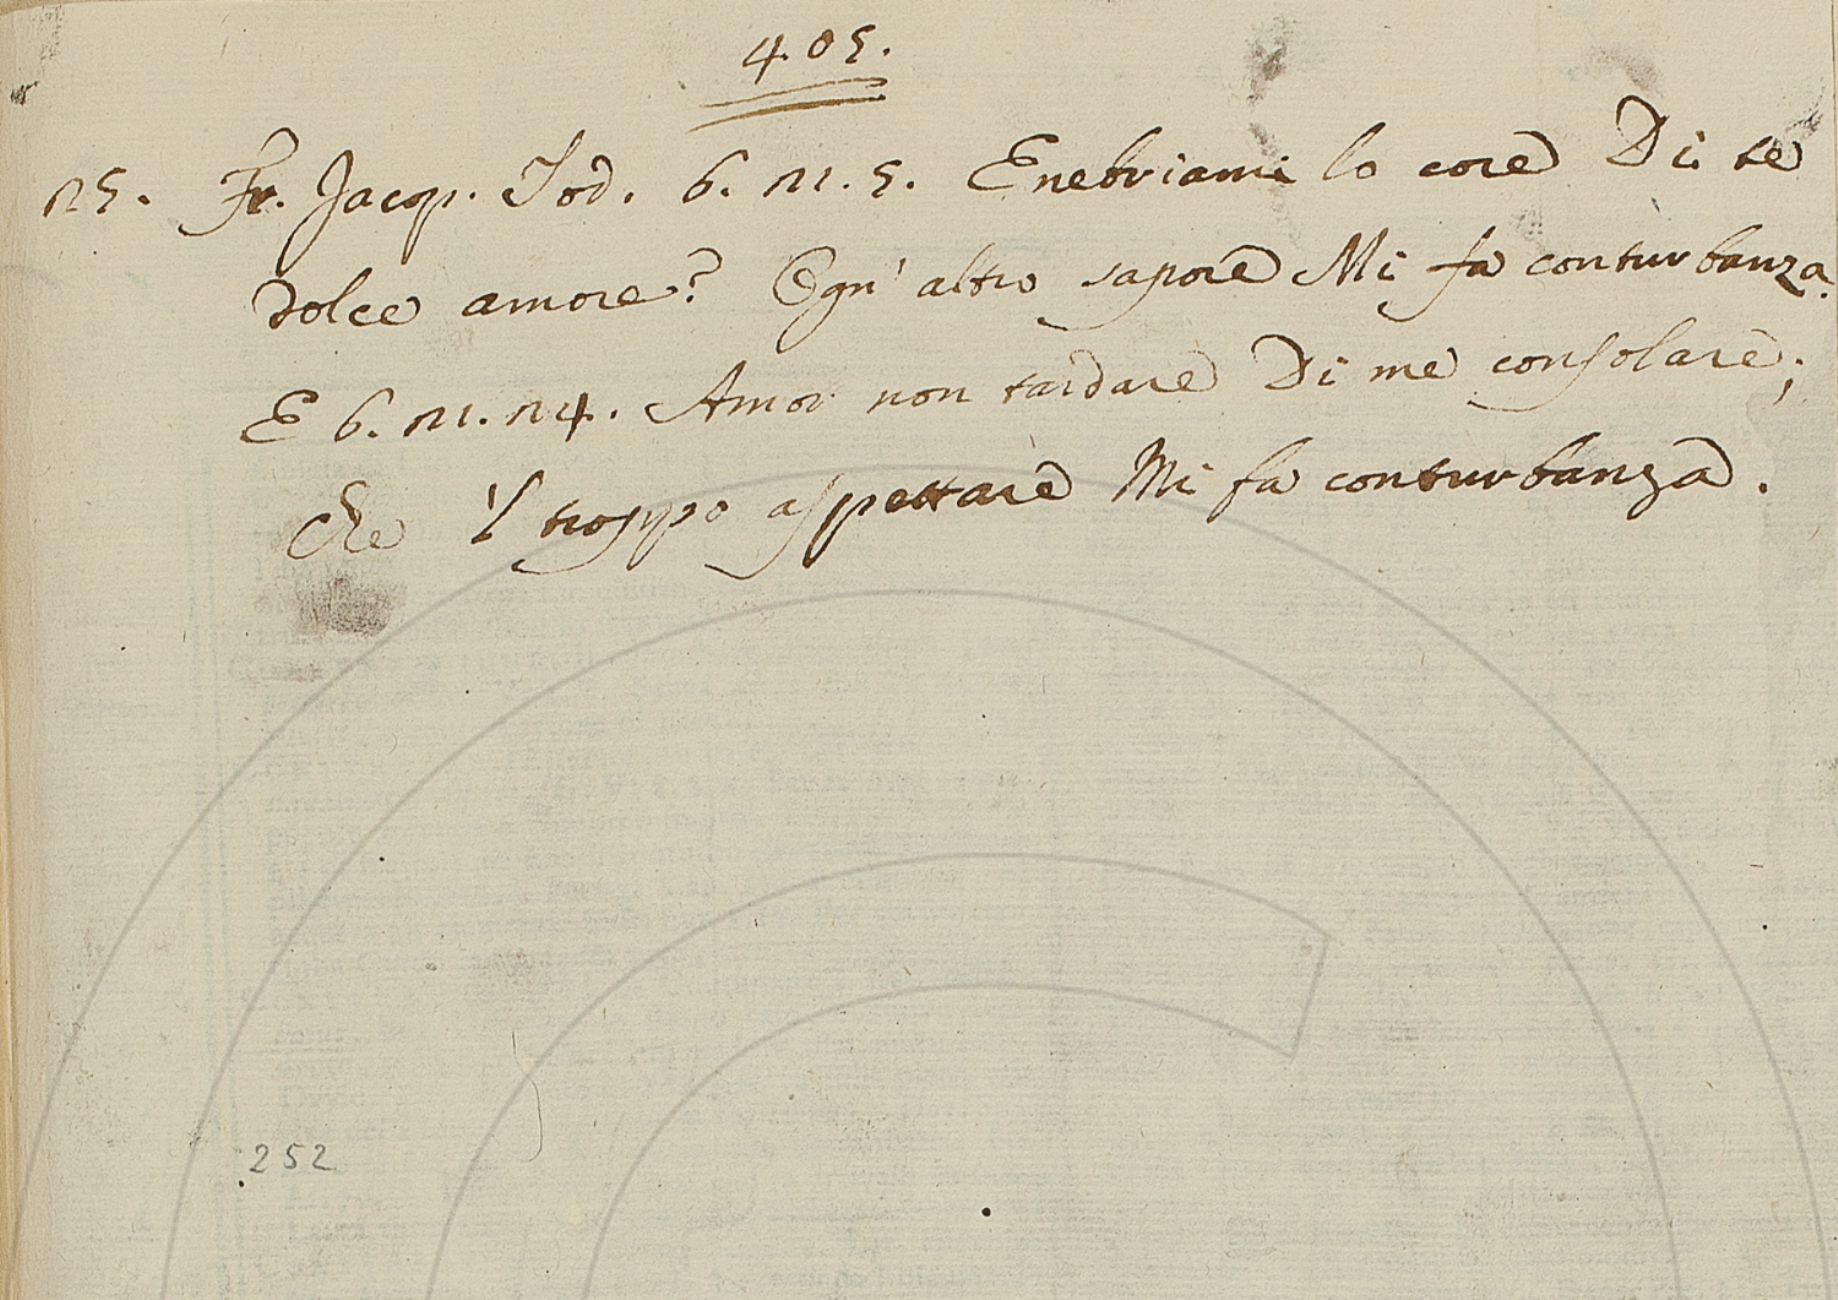 405.
15. Fr. Jacop. Tod. 6. 11. 5. Enebriami lo core Di te
dolce amore? Ogn' altro sapore Mi fa conturbanza.
E 6. 11. 14. Amor non tardare Di me consolare;
Che 'l troppo aspettare Mi fa conturbanza.
252